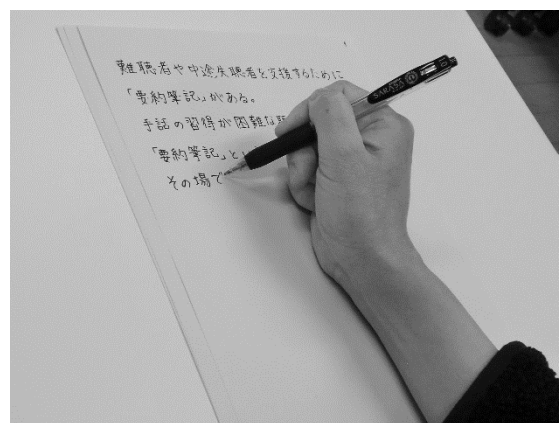 難聴者や中途失聴者を支援するために
「要約筆記」がある。
手話の習得が困難な
「要約筆記」と
その場で
SARASA